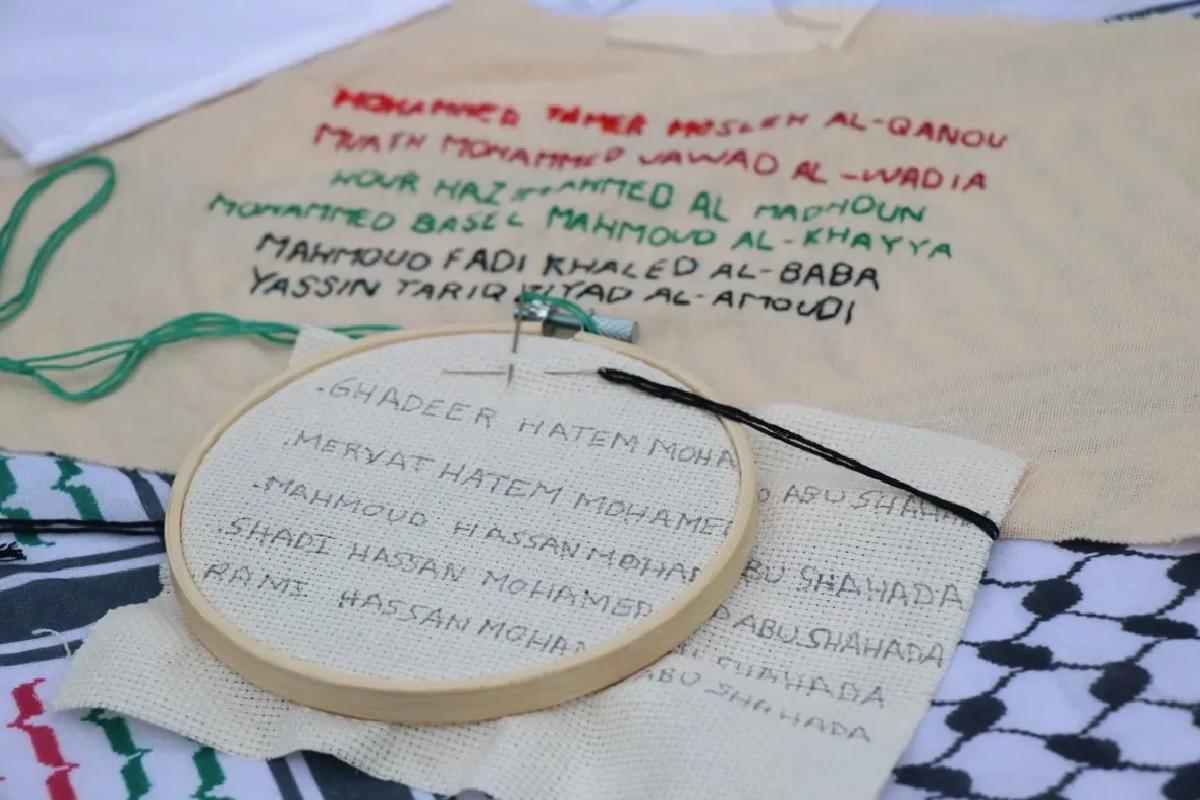 MOHAMMED TAMER MOSLEH AL-QANOU
MUATH MOHAMMED JAWAD AL-WADIA
HOUR AL MADHOUN
MOHAMMED BASEL MAHMOUD AL-KHAYYA
MAHMOUD FADI KHALED AL-BABA
YASSIN TARIQ AL-AMOUDI
.GHADEER HATEM MOHA ABU SHAHADA
.MERVAT HATEM MOHAMED ABU SHAHADA
.MAHMOUD HASSAN MOHAM D ABU SHAHADA
.SHADI HASSAN MOHAMED SHAHADA
RAMI HASSAN MOHAM ABU SHAHADA